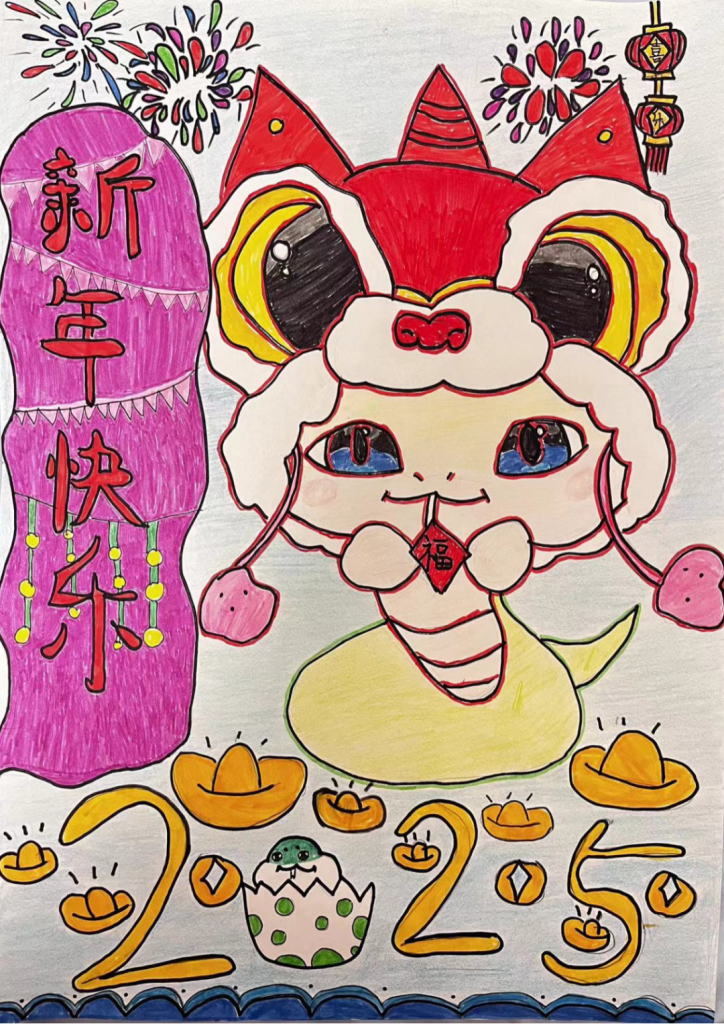 新年快乐
喜
福
2025